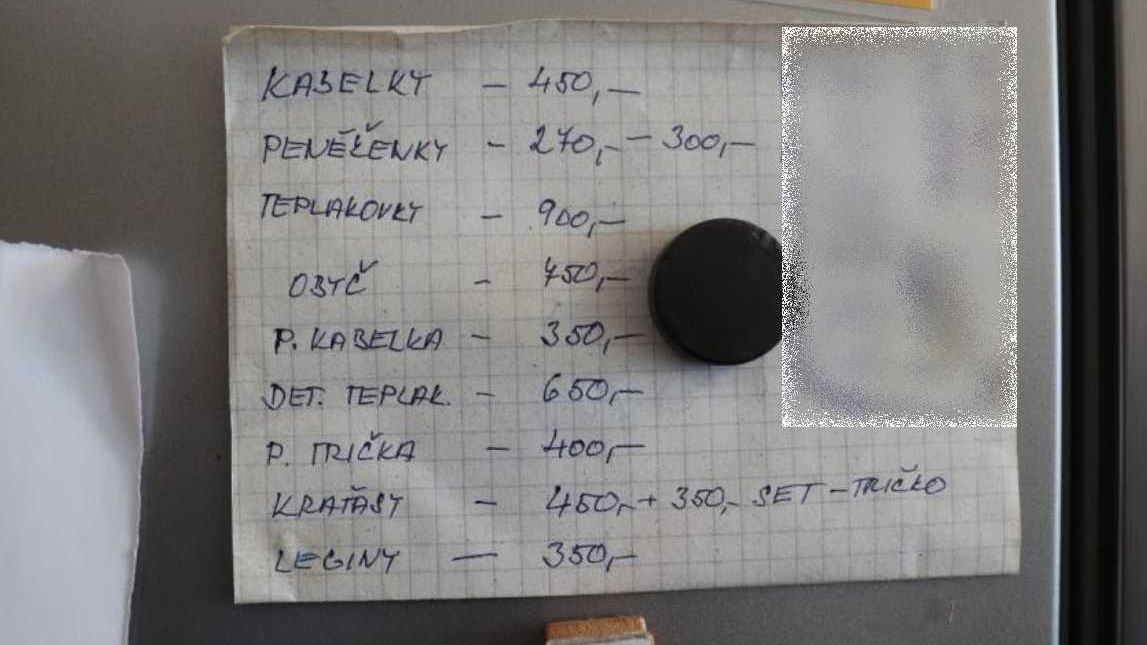 KABELKY - 450,-
PENĚŽENKY - 270,- - 300,-
TEPLAKOVKY - 900,-
OBYČ - 450,-
P. KABELKA - 350,-
DET. TEPLAK. - 650,-
P. TRIČKA - 400,-
KRAŤASY - 450,- + 350,- SET - TRIČKO
LEGINY - 350,-